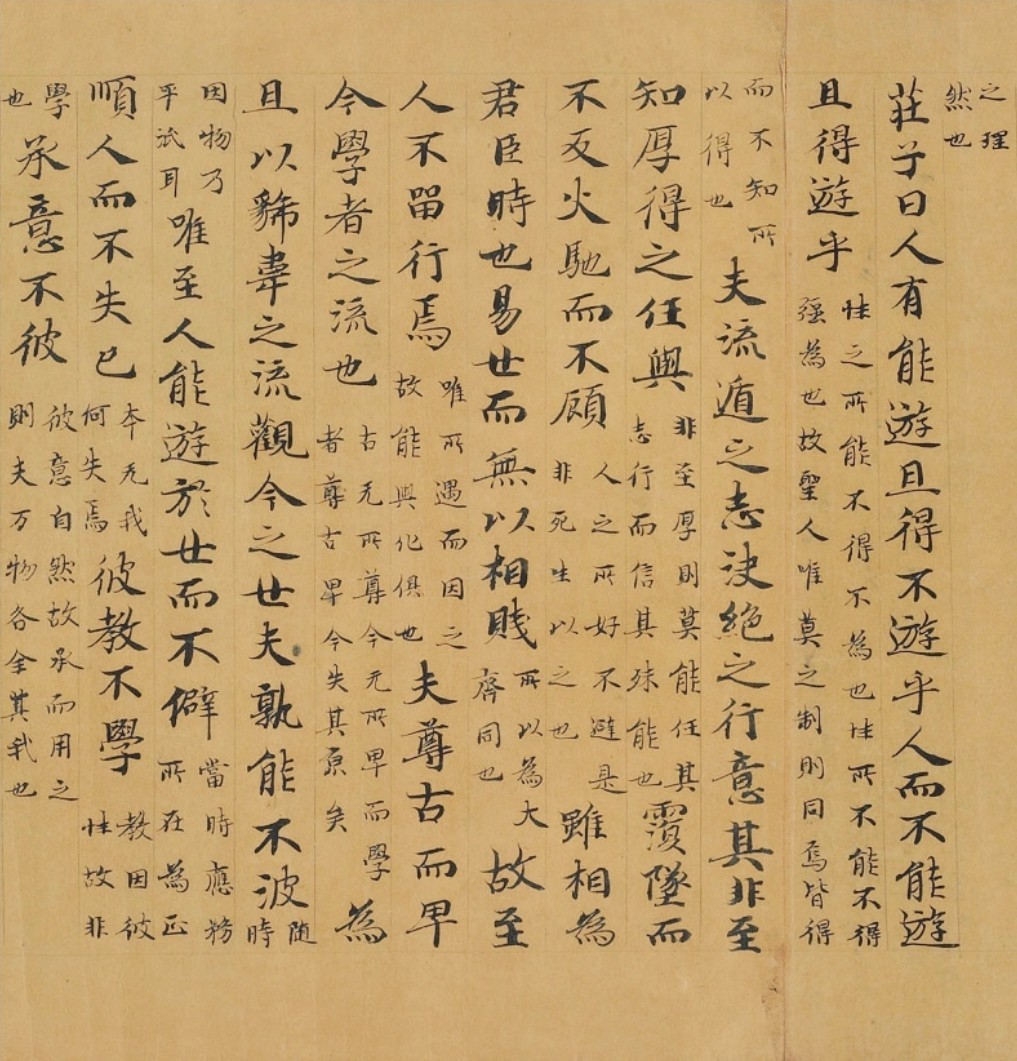 之理然也
莊子曰人有能遊且得不遊乎人而不能遊
且得遊乎性之所能不得不為也性所不能不得强為也故聖人唯莫之制則同焉皆得
而不知所以得也夫流遁之志決絕之行意其非至
知厚得之任與非至厚則莫能任其志行而信其殊能也覆墜而
不反火馳而不顧人之所好不避是非死生以之也雖相為
君臣時也易世而無以相賤所以為大齊同也故至
人不留行焉唯所遇而因之故能與化俱也夫尊古而卑
今學者之流也古无所尊今无所卑而學者尊古卑今失其原矣為
且以豨韋之流觀今之世夫孰能不波隨時
因物乃平泯耳唯至人能遊於世而不僻當時應務所在為正
順人而不失己本无我何失焉彼教不學教因彼性故非
學也承意不彼彼意自然故承而用之則夫万物各全其我也